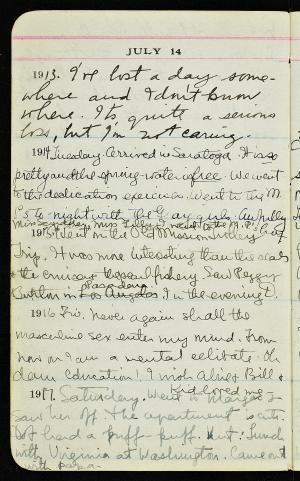 JULY 14
1913. I've lost a day some-
where and I don't know
where. It's quite a serious
loss, but I'm not caring.
1914 Tuesday Arrived in Saratoga. It is so
pretty and the spring water is free. We went
to the dedication exercises. Went to the M.
P.'s to night with the Gay girls
1915 Went on the Old Mission Trolley
Trip. It was more interesting than the seals
& the cruiser. Saw Peggy
Burton in Los Angeles Pasadena in the evening.
1916 Fri. Never again shall the
masculine sex enter my mind. From
now on I am a mental celibate. Oh
darn education! I wish Alice & Bill &
1917. Saturday. Went
saw her off & the apartment is cute.
Dot had a puff-puff. Hut: Lunch
with Virginia at Washington. Came out
with papa.